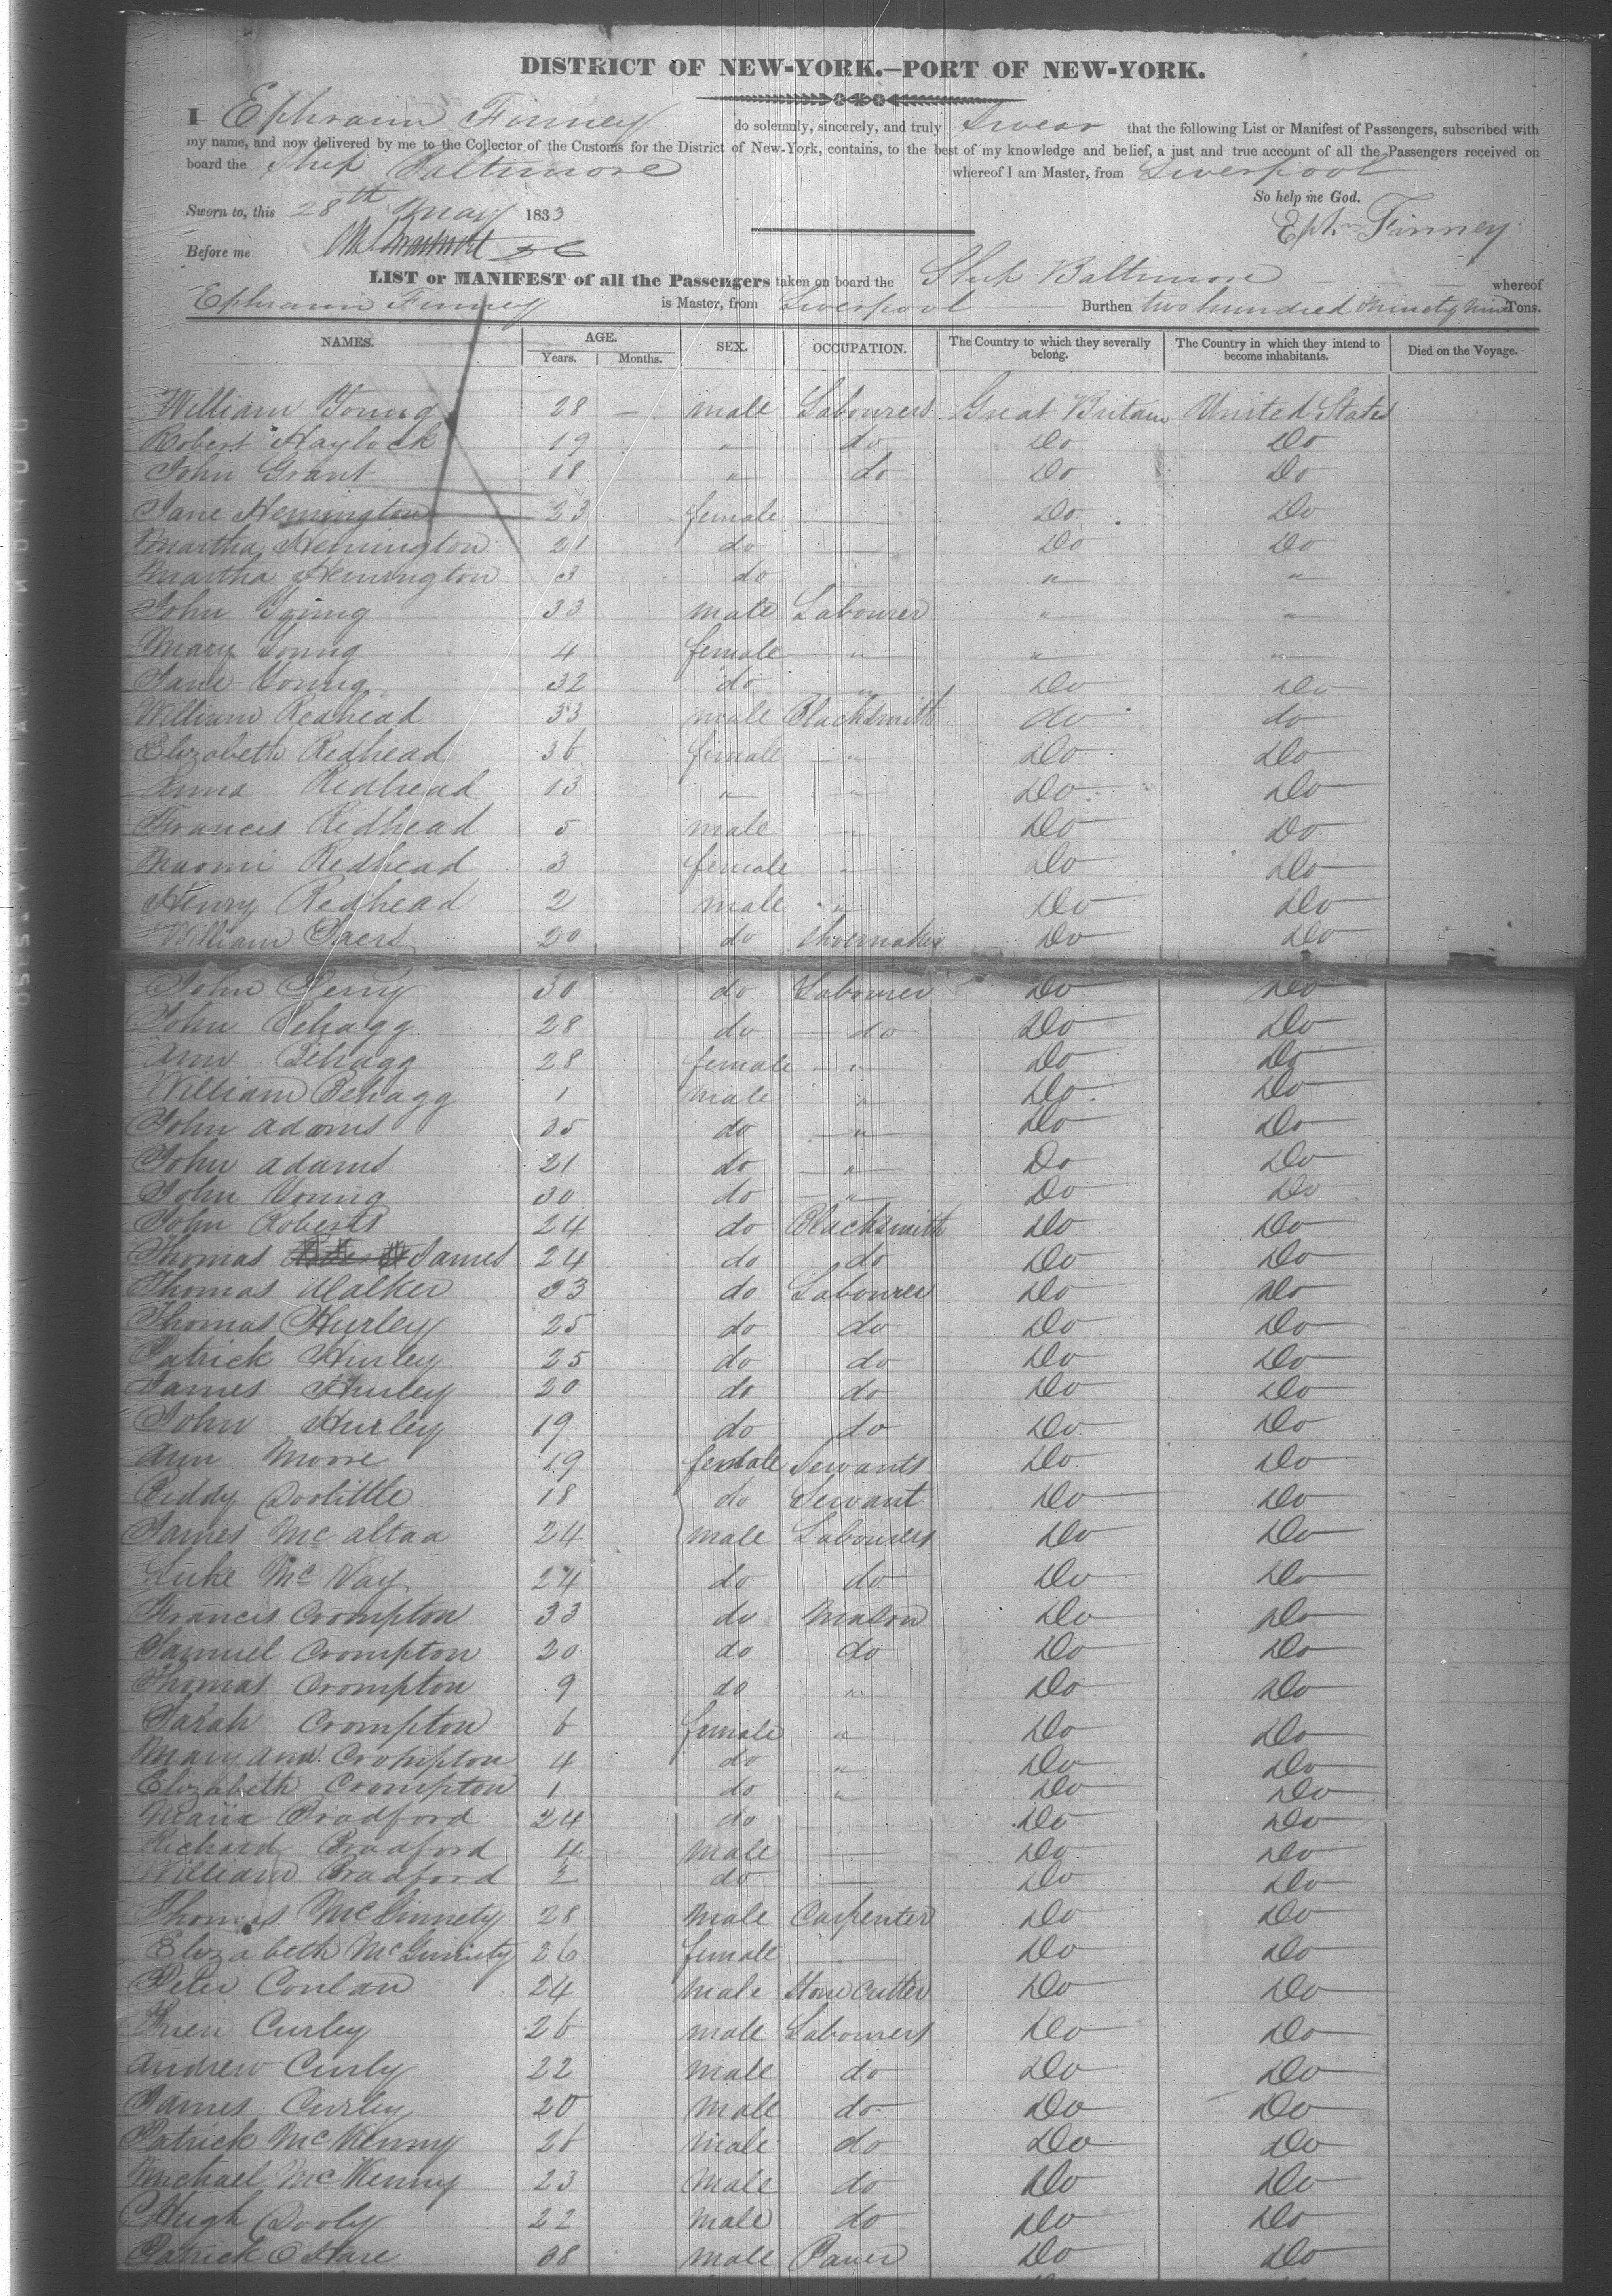 DISTRICT OF NEW-YORK.—PORT OF NEW-YORK.
I Ephraim Finney do solemnly, sincerely, and truly Swear that the following List or Manifest of Passengers, subscribed with
my name, and now delivered by me to the Collector of the Customs for the District of New-York, contains, to the best of my knowledge and belief, a just and true account of all the Passengers received on
board the Ship Baltimore whereof I am Master, from Liverpool
So help me God.
Sworn to, this 28th May 1833
Eph. Finney
Before me
LIST or MANIFEST of all the Passengers taken on board the Ship Baltimore whereof
Ephraim Finney is Master, from Liverpool Burthen two hundred ninety nine Tons.
NAMES. AGE. SEX. OCCUPATION. The Country to which they severally belong. The Country in which they intend to become inhabitants. Died on the Voyage.
Years. Months.
William Young 28 — male Labourers Great Britain United States
Robert Haylock 19 " do Do Do
John Grant 18 " do Do Do
Jane Hemington 23 female — Do Do
Martha Hemington 21 do — Do Do
Martha Hemington 3 do " "
John Young 33 male Labourer " "
Mary Young 4 female " " "
Jane Young 32 do " Do Do
William Redhead 33 male Blacksmith do do
Elizabeth Redhead 36 female " Do Do
Anna Redhead 13 " " Do Do
Francis Redhead 5 male " Do Do
Naomi Redhead 3 female " Do Do
Henry Redhead 2 male " Do Do
William 20 do Shoemaker Do Do
John Perry 30 do Labourer Do Do
John Behagg 28 do do Do Do
Ann Behagg 28 female " Do Do
William Behagg 1 male " Do Do
John Adams 35 do " Do Do
John Adams 21 do " Do Do
John Young 30 do " Do Do
John Roberts 24 do Blacksmith Do Do
Thomas James 24 do do Do Do
Thomas Walker 23 do Labourer Do Do
Thomas Hurley 25 do do Do Do
Patrick Hurley 25 do do Do Do
James Hurley 20 do do Do Do
John Hurley 19 do do Do Do
Ann Moore 19 female Servants Do Do
Biddy Doolittle 18 do Servant Do Do
James Mc altaa 24 male Labourers Do Do
Luke Mc Vay 24 do do Do Do
Francis Crompton 33 do Mason Do Do
Samuel Crompton 20 do do Do Do
Thomas Crompton 9 do " Do Do
Sarah Crompton 6 female " Do Do
Mary Ann Crompton 4 do " Do Do
Elizabeth Crompton 1 do " Do Do
Maria Bradford 24 do Do Do
Richard Bradford 4 male — Do Do
William Bradford 2 do — Do Do
Thomas McGinnety 28 Male Carpenter Do Do
Elizabeth McGinnety 26 female — Do Do
Peter Conlan 24 male Stone Cutter Do Do
Brien Curley 26 male Labourers Do Do
Andrew Curly 22 male do Do Do
James Curley 20 male do Do Do
Patrick McKenny 26 male do Do Do
Michael McKenny 23 Male do Do Do
Hugh Dooly 22 Male do Do Do
Patrick O Hare 38 Male Paver Do Do